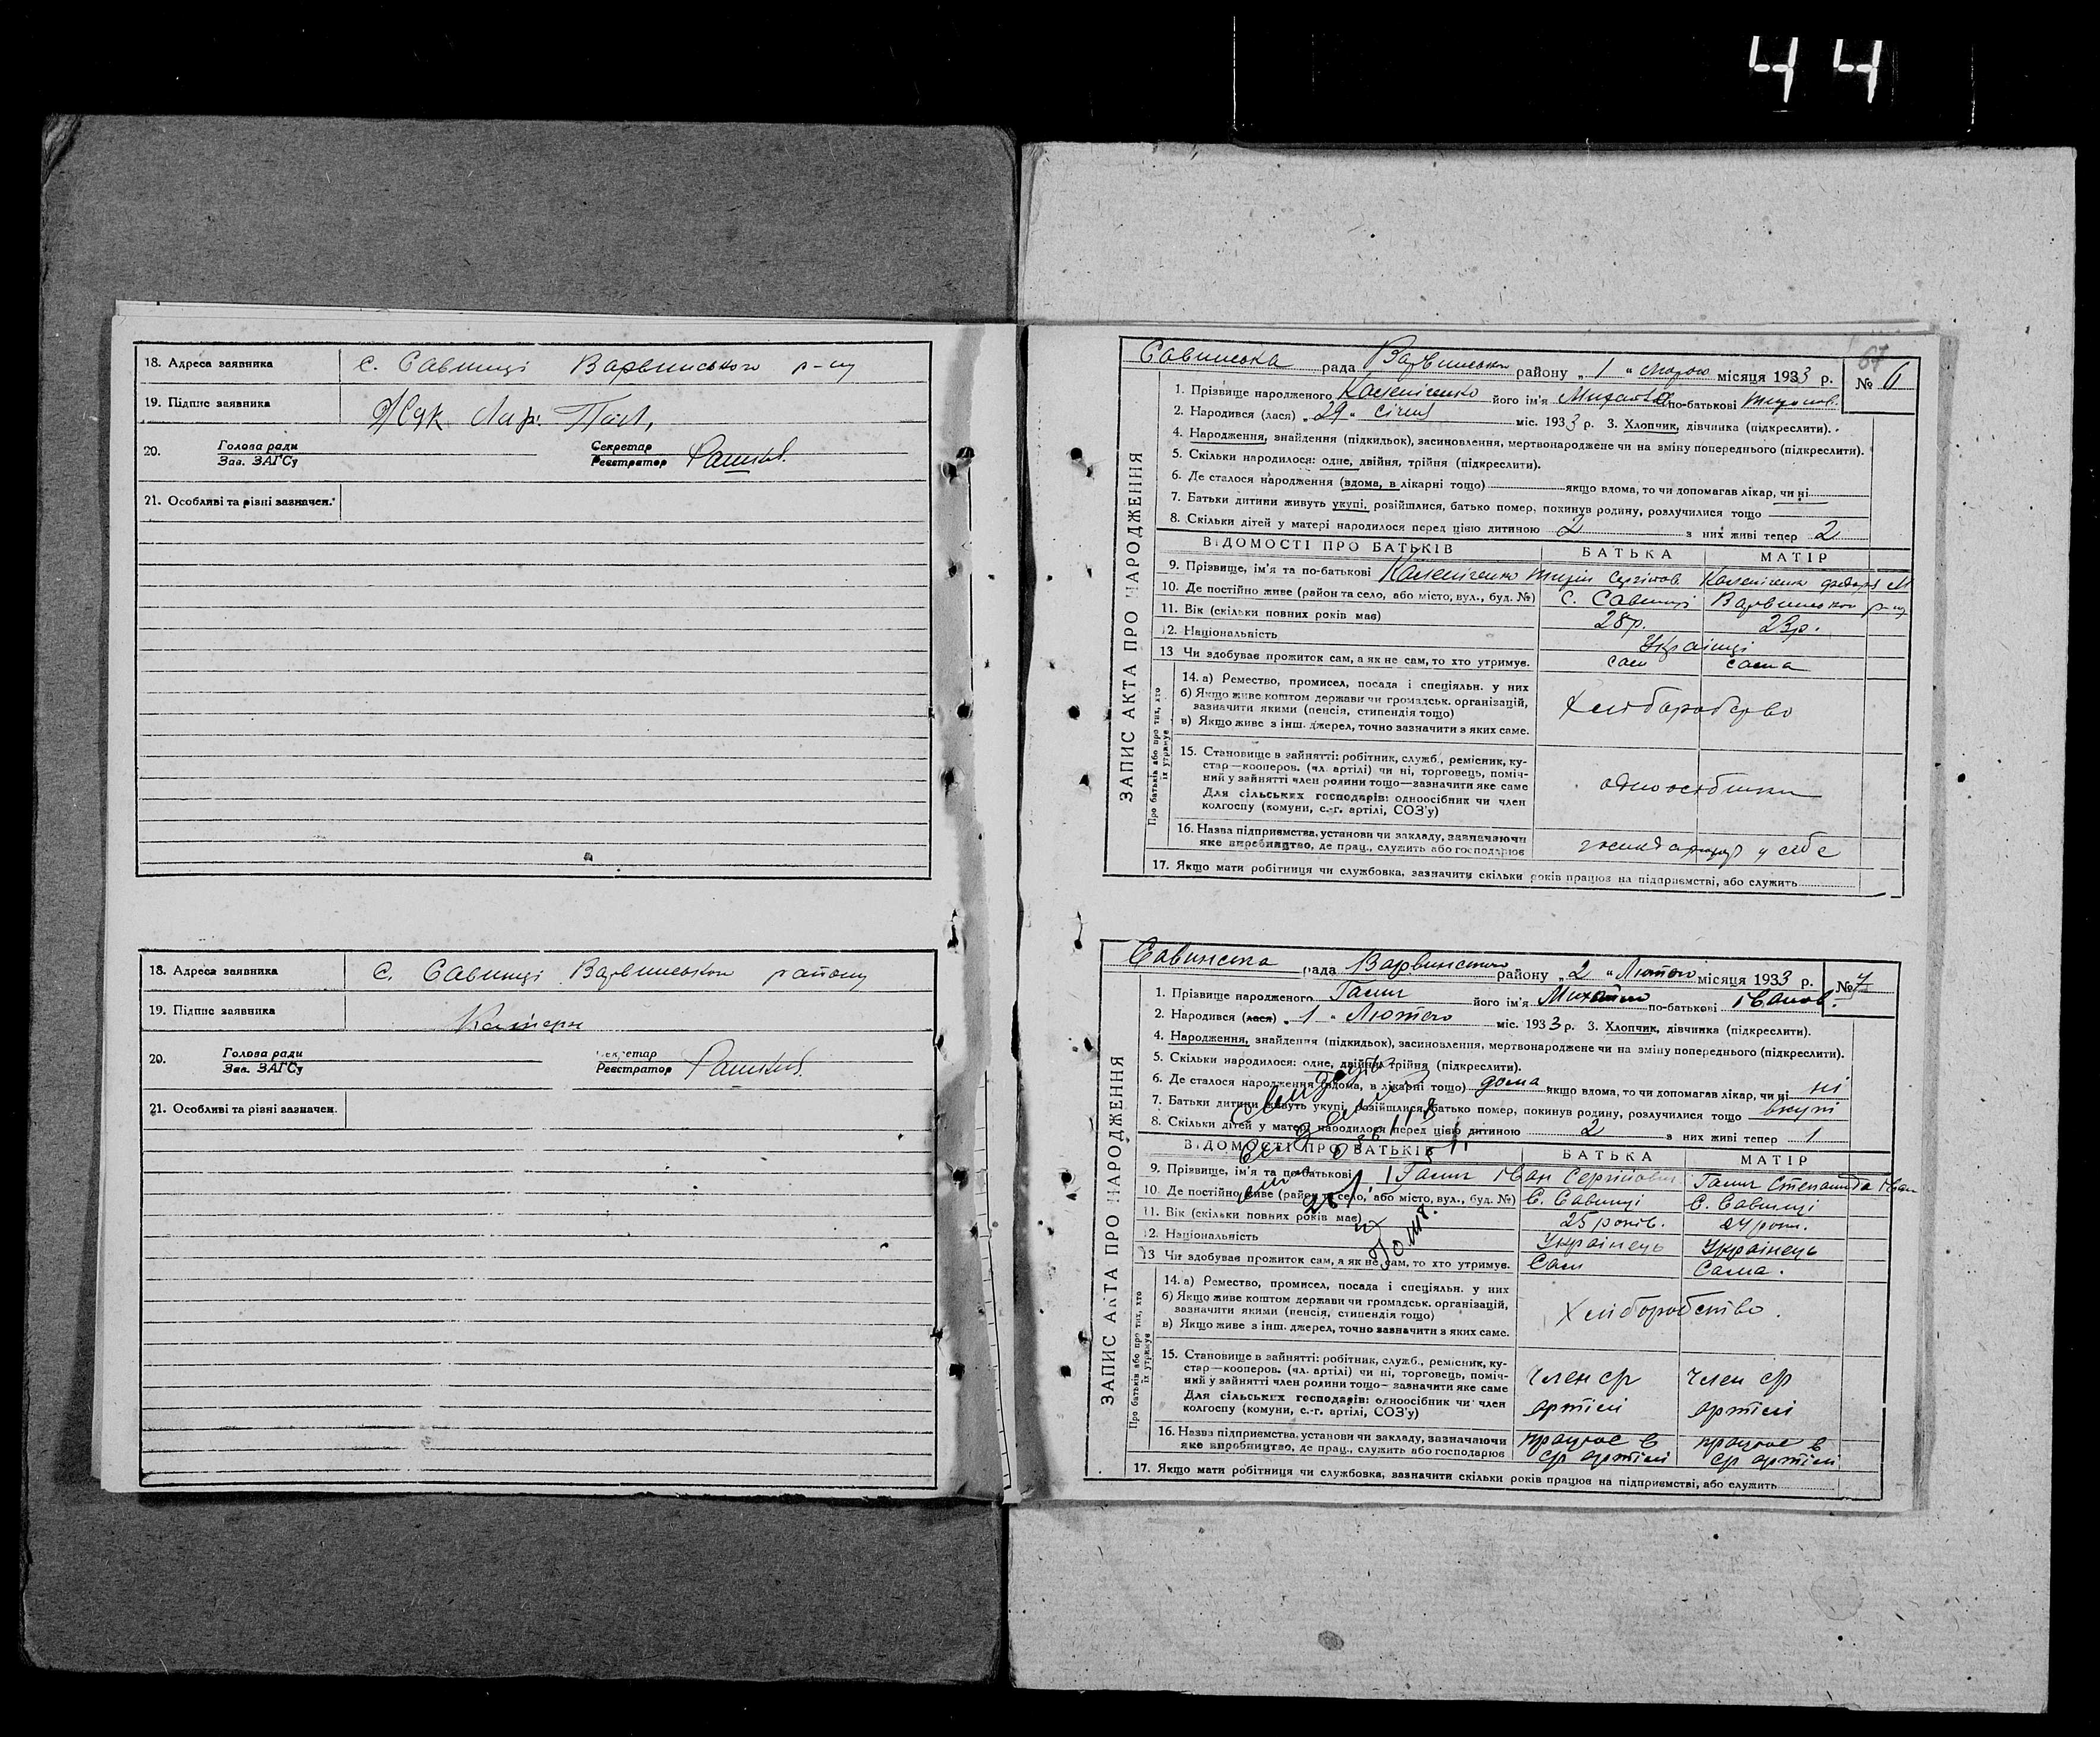 44
18. Адреса заявника с. Савинці Варвинського р-ну
19. Підпис заявника
20. Голова ради
Зав. ЗАГСу
Секретар
Реєстратор
21. Особливі та різні зазначен.
18. Адреса заявника с. Савинці Варвинського району
19. Підпис заявника
20. Голова ради
Зав. ЗАГСу
Секретар
Реєстратор
21. Особливі та різні зазначен.
67
ЗАПИС АКТА ПРО НАРОДЖЕННЯ
Савинська рада Варвинського району „ 1 “ лютого місяця 1933 р. № 6
1. Прізвище народженого його ім'я Михайло по-батькові
2. Народився (лася) „ 29 “ січня міс. 1933 р. 3. Хлопчик, дівчинка (підкреслити).
4. Народження, знайдення (підкидьок), засиновлення, мертвонароджене чи на зміну попереднього (підкреслити).
5. Скільки народилося: одне, двійня, трійня (підкреслити).
6. Де сталося народження (вдома, в лікарні тощо) якщо вдома, то чи допомагав лікар, чи ні
7. Батьки дитини живуть укупі, розійшлися, батько помер, покинув родину, розлучилися тощо
8. Скільки дітей у матері народилося перед цією дитиною 2 з них живі тепер 2
ВІДОМОСТІ ПРО БАТЬКІВ БАТЬКА МАТІР
9. Прізвище, ім'я та по-батькові
10. Де постійно живе (район та село, або місто, вул., буд. №) с. Савинці Варвинського р-ну
11. Вік (скільки повних років має) 28 р. 23 р.
12. Національність Українці
13 Чи здобуває прожиток сам, а як не сам, то хто утримує. сам сама
Про батьків або про тих, хто їх утримує
14. а) Ремество, промисел, посада і спеціяльн. у них
б) Якщо живе коштом держави чи громадськ. організацій,
зазначити якими (пенсія, стипендія тощо)
в) Якщо живе з інш. джерел, точно зазначити з яких саме.
Хліборобство
15. Становище в зайнятті: робітник, служб., ремісник, ку-
стар—кооперов. (чл. артілі) чи ні, торговець, поміч-
ний у зайнятті член родини тощо—зазначити яке саме
Для сільських господарів: одноосібник чи член
колгоспу (комуни, с.-г. артілі, СОЗ'у)
одноосібники
16. Назва підприємства, установи чи закладу, зазначаючи
яке виробництво, де прац., служить або господарює
у себе
17. Якщо мати робітниця чи службовка, зазначити скільки років працює на підприємстві, або служить
ЗАПИС АКТА ПРО НАРОДЖЕННЯ
Савинська рада Варвинського району „ 2 “ Лютого місяця 1933 р. № 7
1. Прізвище народженого його ім'я Михайло по-батькові Іванов.
2. Народився (лася) „ 1 “ Лютого міс. 1933 р. 3. Хлопчик, дівчинка (підкреслити).
4. Народження, знайдення (підкидьок), засиновлення, мертвонароджене чи на зміну попереднього (підкреслити).
5. Скільки народилося: одне, двійня, трійня (підкреслити).
6. Де сталося народження (вдома, в лікарні тощо) дома якщо вдома, то чи допомагав лікар, чи ні ні
7. Батьки дитини живуть укупі, розійшлися, батько помер, покинув родину, розлучилися тощо вкупі
8. Скільки дітей у матері народилося перед цією дитиною 2 з них живі тепер 1
ВІДОМОСТІ ПРО БАТЬКІВ БАТЬКА МАТІР
9. Прізвище, ім'я та по-батькові Іван Сергійович Степанида Іван
10. Де постійно живе (район та село, або місто, вул., буд. №) С. Савинці С. Савинці
11. Вік (скільки повних років має) 25 років. 24 рок.
12. Національність Українець Українець
13 Чи здобуває прожиток сам, а як не сам, то хто утримує. Сам Сама.
Про батьків або про тих, хто їх утримує
14. а) Ремество, промисел, посада і спеціяльн. у них
б) Якщо живе коштом держави чи громадськ. організацій,
зазначити якими (пенсія, стипендія тощо)
в) Якщо живе з інш. джерел, точно зазначити з яких саме.
Хліборобство.
15. Становище в зайнятті: робітник, служб., ремісник, ку-
стар—кооперов. (чл. артілі) чи ні, торговець, поміч-
ний у зайнятті член родини тощо—зазначити яке саме
Для сільських господарів: одноосібник чи член
колгоспу (комуни, с.-г. артілі, СОЗ'у)
член ср артілі член ср артілі
16. Назва підприємства, установи чи закладу, зазначаючи
яке виробництво, де прац., служить або господарює
працює в ср артілі працює в ср артілі
17. Якщо мати робітниця чи службовка, зазначити скільки років працює на підприємстві, або служить